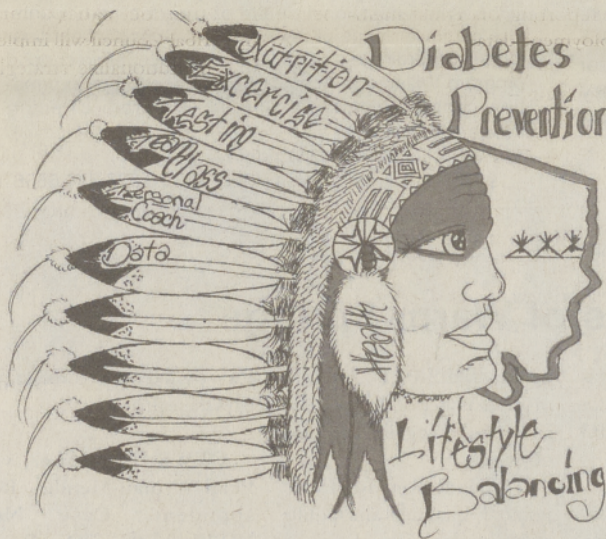 Diabetes
Prevention
Nutrition
Excercise
Class
Personal
Coach
Data
Health
Lifestyle
Balancing